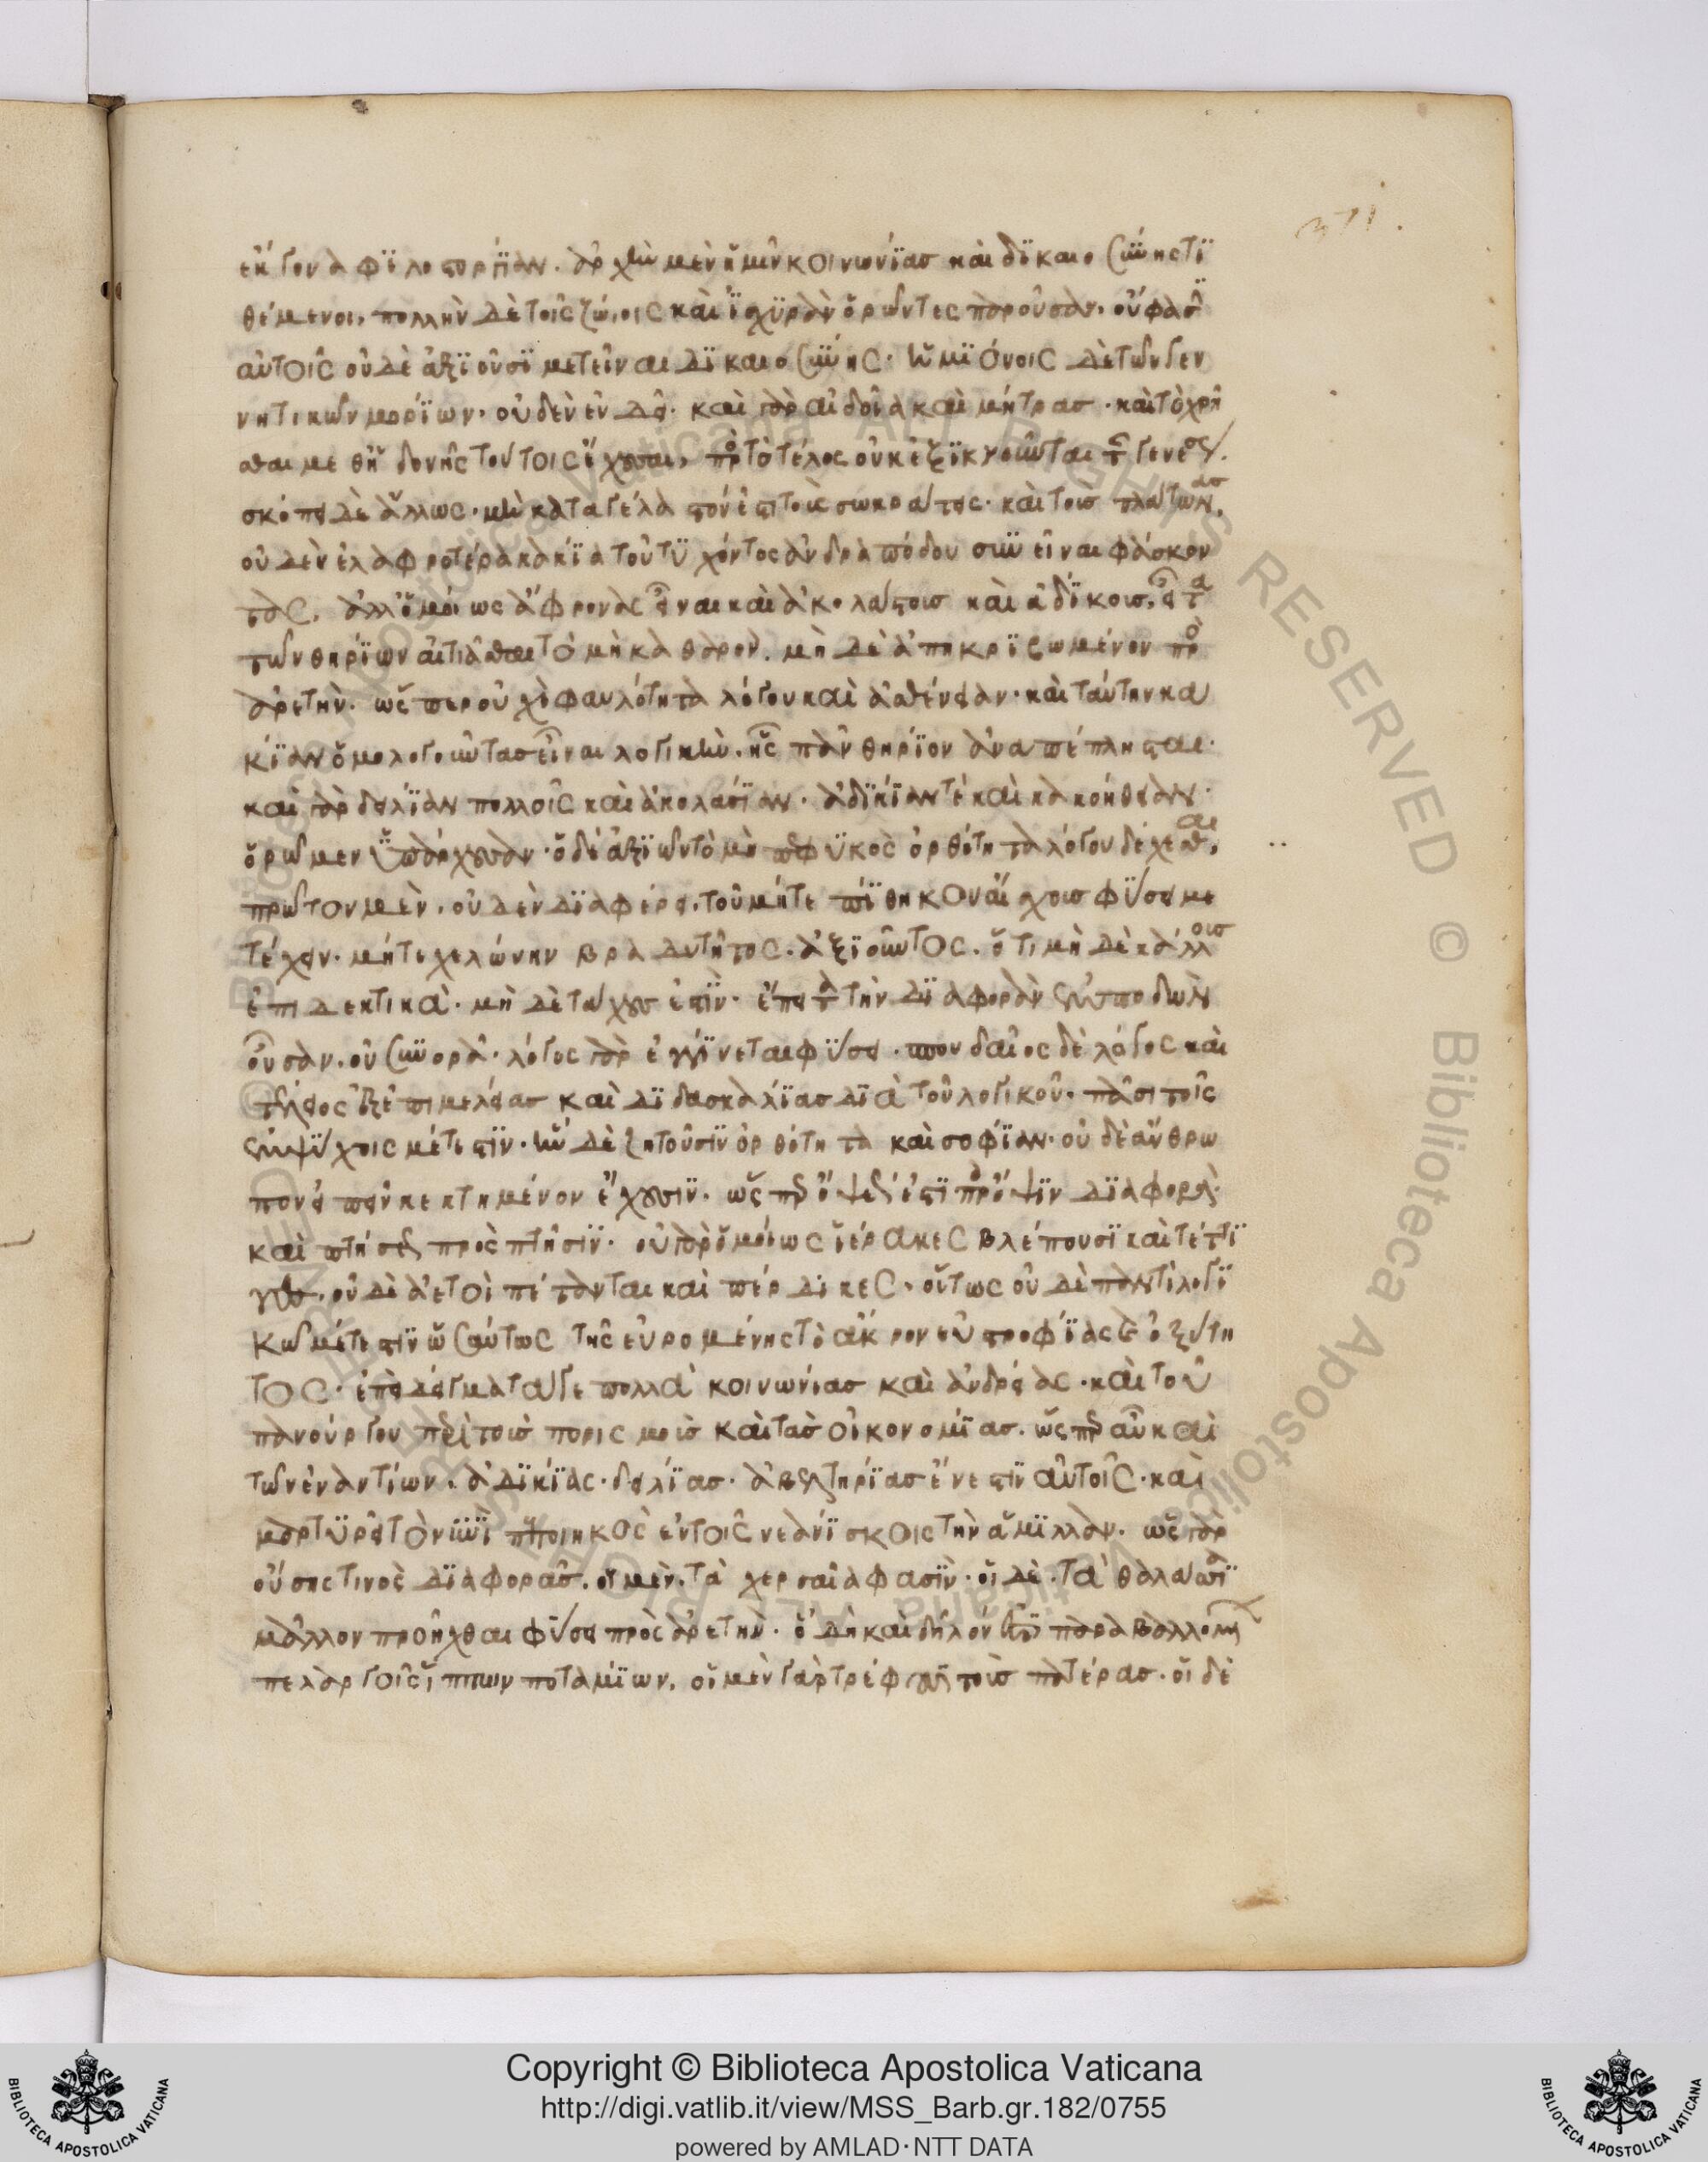 371.
ἔκγονα φιλοστοργίαν. ἀρχὴν μὲν ἡμῖν κοινωνίας καὶ δικαιοσύνης τι
θέμενοι, πολλὴν δὲ τοῖς ζώιοις καὶ ἰσχυρὰν ὁρῶντες παροῦσαν. οὔ φασι
αὐτοῖς οὐδὲ ἀξιοῦσι μετεῖναι δικαιοσύνης. ἡμιόνοις δὲ τῶν γεν
νητικῶν μορίων. οὐδὲν ἐνδεῖ. καὶ γὰρ αἰδοῖα καὶ μήτρας. καὶ τὸ χρῆ
σθαι μεθ ἡδονῆς τούτοις ἔχουσαι, πρὸς τὸ τέλος οὐκ ἐξικνοῦνται τῆς γενέσεως.
σκόπει δὲ ἄλλως. μὴ καταγέλαστόν ἐστι τοὺς σωκράτεις. καὶ τοὺς πλάτωνας.
οὐδὲν ἐλαφροτέρα κακία τοῦ τυχόντος ἀνδραπόδου συνεῖναι φάσκον
τας. ἀλλ ὁμοίως ἄφρονας εἶναι καὶ ἀκολάστους καὶ ἀδίκους. εἶτα
τῶν θηρίων αἰτιᾶσθαι τὸ μὴ καθαρὸν. μὴ δὲ ἀπηκριβωμένον πρὸς
ἀρετὴν. ὥσπερ οὐχὶ φαυλότητα λόγου καὶ ἀσθένειαν. καὶ ταύτην κα
κίαν ὁμολογοῦντας εἶναι λογικὴν. ἧς πᾶν θηρίον ἀναπέπλησται.
καὶ γὰρ δειλίαν πολλοῖς καὶ ἀκολασίαν. ἀδικίαν τὲ καὶ κακόνθειαν.
ὁρῶμεν ὑπάρχουσαν. ὁ δὲ ἀξιῶν τὸ μὴ πεφυκὸς ὀρθότητα λόγου δέχεσθαι,
πρῶτον μὲν. οὐδὲν διαφέρει. τοῦ μήτε πίθηκον αἴσχους φύσει με
τέχειν. μήτε χελώνην βραδυτῆτος. ἀξιοῦντος. ὅτι μὴ δὲ κάλλους
ἐπιδεκτικὰ. μὴ δὲ τάχους ἐστὶν. ἔπειτα τὴν διαφορὰν ἐμποδὼν
οὖσαν. οὐ συνορᾶ. λόγος γὰρ ἐγγίνεται φύσει. σπουδαῖος δὲ λόγος καὶ
τέλειος ἐξ ἐπιμελείας καὶ διδασκαλίας διὰ τοῦ λογικοῦ. πᾶσι τοῖς
ἐμψύχοις μέτεστιν. ἣν δὲ ζητοῦσιν ὀρθότητα καὶ σοφίαν. οὐδὲ ἄνθρω
πον εἰπεῖν κεκτημένον ἔχουσιν. ὥσπερ ὄψεώς ἐστι πρὸς ὄψιν διαφορὰ.
καὶ πτήσεως πρὸς πτῆσιν. οὐ γὰρ ὁμοίως ἱέρακες βλέπουσι καὶ τέττι
γες. οὐδὲ ἀετοὶ πέτανται καὶ πέρδικες. οὕτως οὐδὲ παντὶ λογι
κῶ μέτεστιν ὡσαύτως τῆς εὑρομένης τὸ ἄκρον εὐστροφίας καὶ ὀξύτη
τος. ἐπεὶ δείγματά γε πολλὰ κοινωνίας καὶ ἀνδρείας. καὶ τοῦ
πανούργου περὶ τοὺς πορισμοὺς καὶ τὰς οἰκονομίας. ὥσπερ αὖ καὶ
τῶν ἐναντίων. ἀδικίας. δειλίας. ἀβελτηρίας ἔνεστιν αὐτοῖς. καὶ
μαρτυρεῖ τὸ νυνὶ πεποιηκὸς ἐν τοῖς νεανίσκοις τὴν ἅμιλλαν. ὡς γὰρ
οὔσης τινὸς διαφορᾶς. οἱ μὲν. τὰ χερσαῖα φασὶν. οἱ δὲ. τὰ θαλάττια
μᾶλλον προῆχθαι φύσει πρὸς ἀρετὴν. ὃ δὴ καὶ δῆλόν ἐστι παραβαλλομένων
πελαργοῖς ἵππων ποταμίων. οἱ μὲν γὰρ τρέφουσι τοὺς πατέρας. οἱ δὲ
Copyright © Biblioteca Apostolica Vaticana
http://digi.vatlib.it/view/MSS_Barb.gr.182/0755
powered by AMLAD·NTT DATA